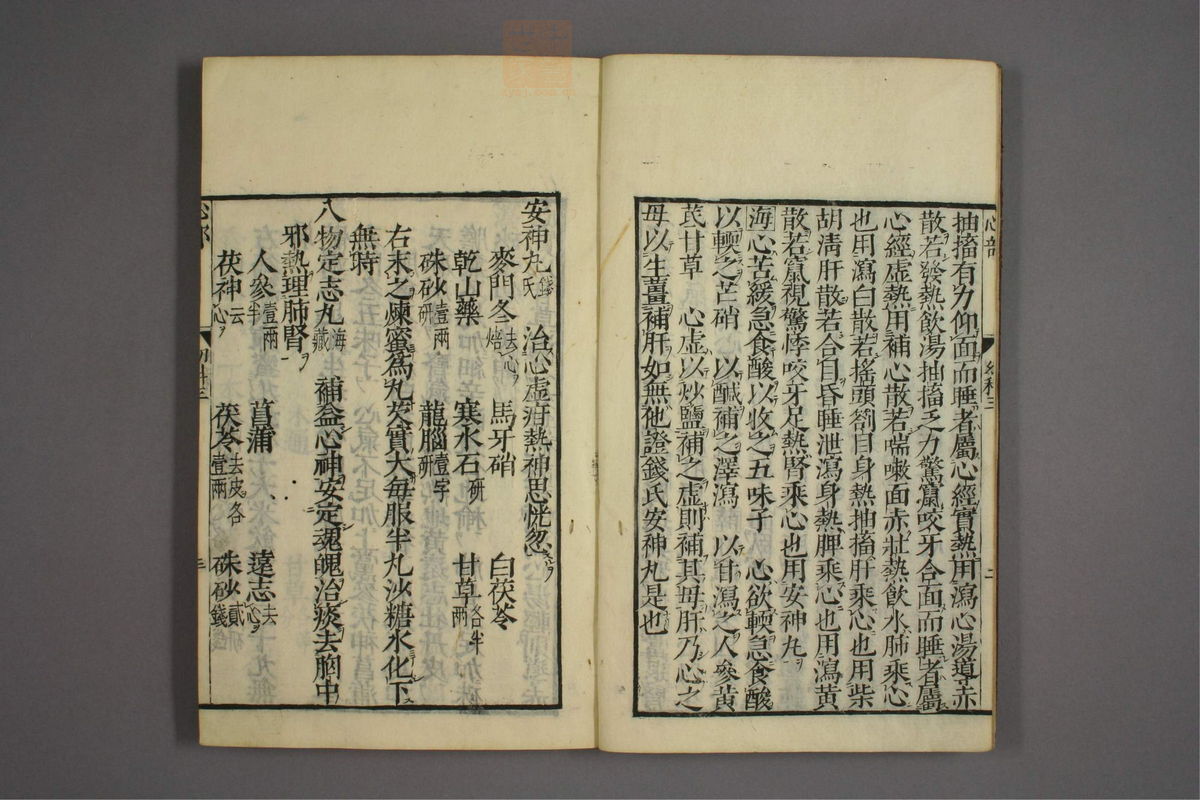 心部
抽搐有力仰面而睡者屬心經實熱用瀉心湯導赤
散若發熱飲湯抽搐乏力驚竄咬牙合面而睡者屬
心經虛熱用補心散若喘嗽面赤壯熱飲水肺乘心
也用瀉白散若搖頭劄目身熱抽搐肝乘心也用柴
胡清肝散若合目昏睡泄瀉身熱脾乘心也用瀉黃
散若竄視驚悸咬牙足熱腎乘心也用安神丸
海心苦緩急食酸以收之五味子 心欲耎急食酸
以耎之芒硝 以醎補之澤瀉 以甘瀉之人參黃
芪甘草 心虛以炒鹽補之虛則補其母肝乃心之
母以生薑補肝如無他證錢氏安神丸是也
安神丸錢氏 治心虛疳熱神思恍忽
麥門冬去心焙 馬牙硝 白茯苓
乾山藥 寒水石研 甘草各半兩
硃砂壹兩研 龍腦壹字研
右末之煉蜜爲丸芡實大每服半丸沙糖水化下
無時
八物定志丸海藏 補益心神安定魂魄治痰去胸中
邪熱理肺腎
人參壹兩半 菖蒲 遠志去心
茯神去心 茯苓去皮各壹兩 硃砂貳錢